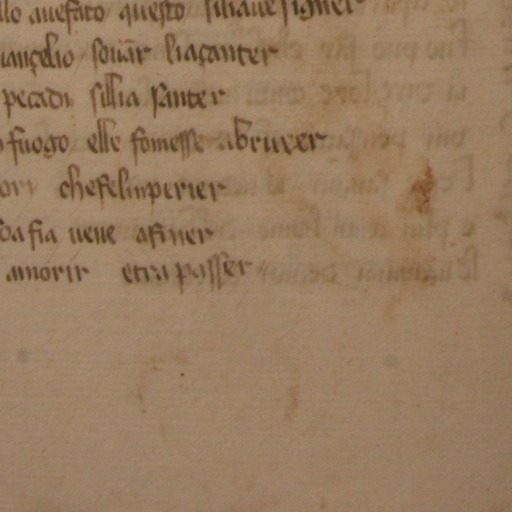 llo auefato questo siliaue signer
uangelio souār liaçanter
pecadi sillia santer
fuogo elle fomesse abruxer
ori chefelinperier
oa fia uene afiner
amorir etrapasser